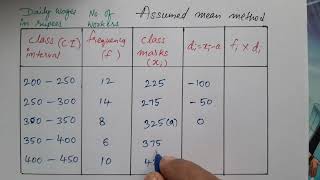 Daily wages in rupees No. of workers Assumed mean method
Class (C I) interval frequency (f) Class marks (xi) di = xi - a fi × di
200 - 250 12 225 -100
250 - 300 14 275 - 50
300 - 350 8 325(a) 0
350 - 400 6 375
400 - 450 10 4